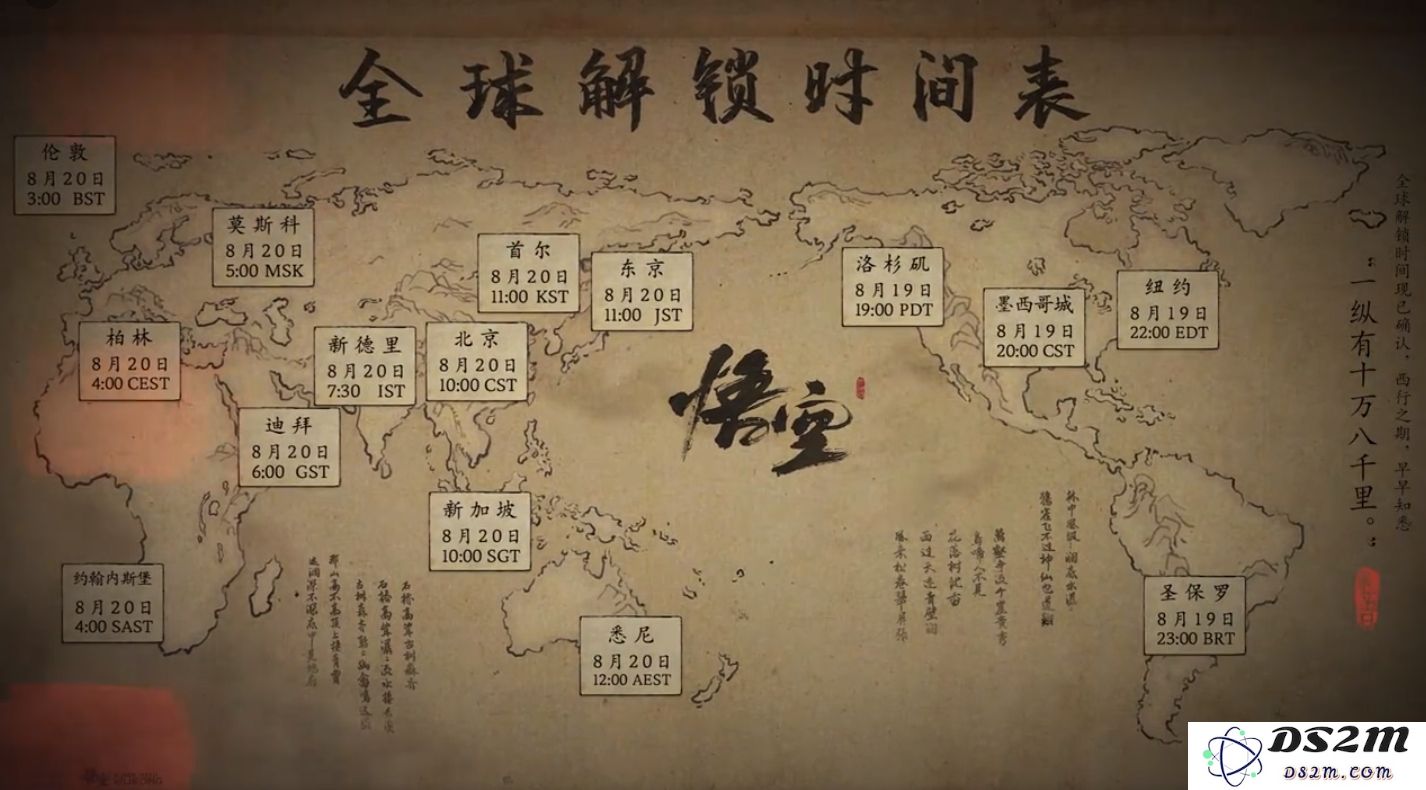 全球解锁时间表
伦敦
8月20日
3:00 BST
莫斯科
8月20日
5:00 MSK
首尔
8月20日
11:00 KST
东京
8月20日
11:00 JST
洛杉矶
8月19日
19:00 PDT
墨西哥城
8月19日
20:00 CST
纽约
8月19日
22:00 EDT
柏林
8月20日
4:00 CEST
新德里
8月20日
7:30 IST
北京
8月20日
10:00 CST
迪拜
8月20日
6:00 GST
悟空
新加坡
8月20日
10:00 SGT
约翰内斯堡
8月20日
4:00 SAST
悉尼
8月20日
12:00 AEST
圣保罗
8月19日
23:00 BRT
全球解锁时间现已确认，西行之期，早早知悉
：一纵有十万八千里。：
DS2M
ds2m.com